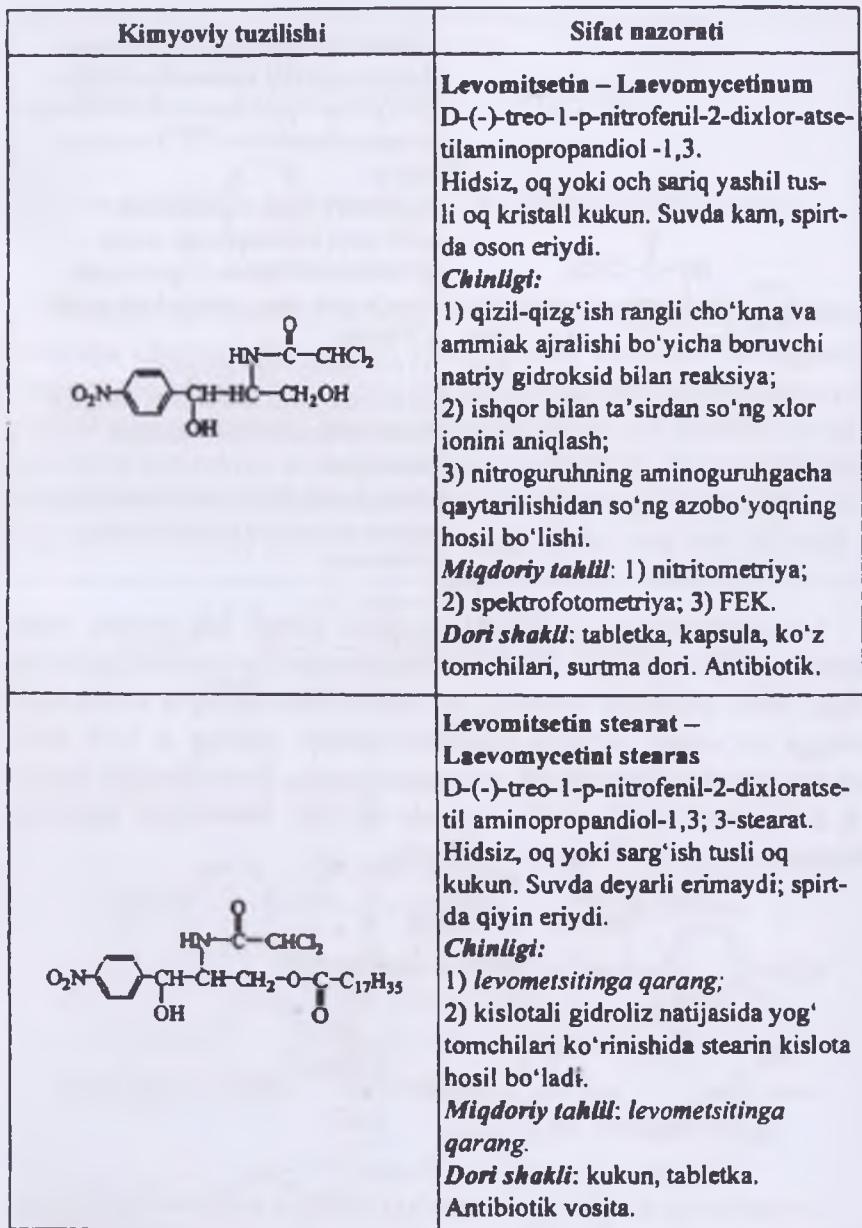 Kimyoviy tuzilishi
Sifat nazorati
O
HN—C—CHCl₂
O₂N—CH—HC—CH₂OH
OH
Levomitsetin – Laevomycetinum
D-(-)-treo-1-p-nitrofenil-2-dixlor-atse-
tilaminopropandiol -1,3.
Hidsiz, oq yoki och sariq yashil tus-
li oq kristall kukun. Suvda kam, spirt-
da oson eriydi.
Chinligi:
1) qizil-qizg‘ish rangli cho‘kma va
ammiak ajralishi bo‘yicha boruvchi
natriy gidroksid bilan reaksiya;
2) ishqor bilan ta’sirdan so‘ng xlor
ionini aniqlash;
3) nitroguruhning aminoguruhgacha
qaytarilishidan so‘ng azobo‘yoqning
hosil bo‘lishi.
Miqdoriy tahlil: 1) nitritometriya;
2) spektrofotometriya; 3) FEK.
Dori shakli: tabletka, kapsula, ko‘z
tomchilari, surtma dori. Antibiotik.
O
HN—C—CHCl₂
O₂N—CH—CH—CH₂—O—C—C₁₇H₃₅
OH
O
Levomitsetin stearat –
Laevomycetini stearas
D-(-)-treo-1-p-nitrofenil-2-dixloratse-
til aminopropandiol-1,3; 3-stearat.
Hidsiz, oq yoki sarg‘ish tusli oq
kukun. Suvda deyarli erimaydi; spirt-
da qiyin eriydi.
Chinligi:
1) levometsitinga qarang;
2) kislotali gidroliz natijasida yog‘
tomchilari ko‘rinishida stearin kislota
hosil bo‘ladi.
Miqdoriy tahlil: levometsitinga
qarang.
Dori shakli: kukun, tabletka.
Antibiotik vosita.